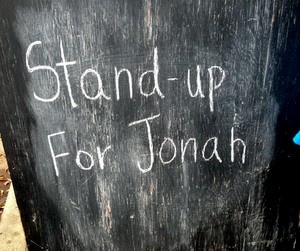 Stand-up
For Jonah